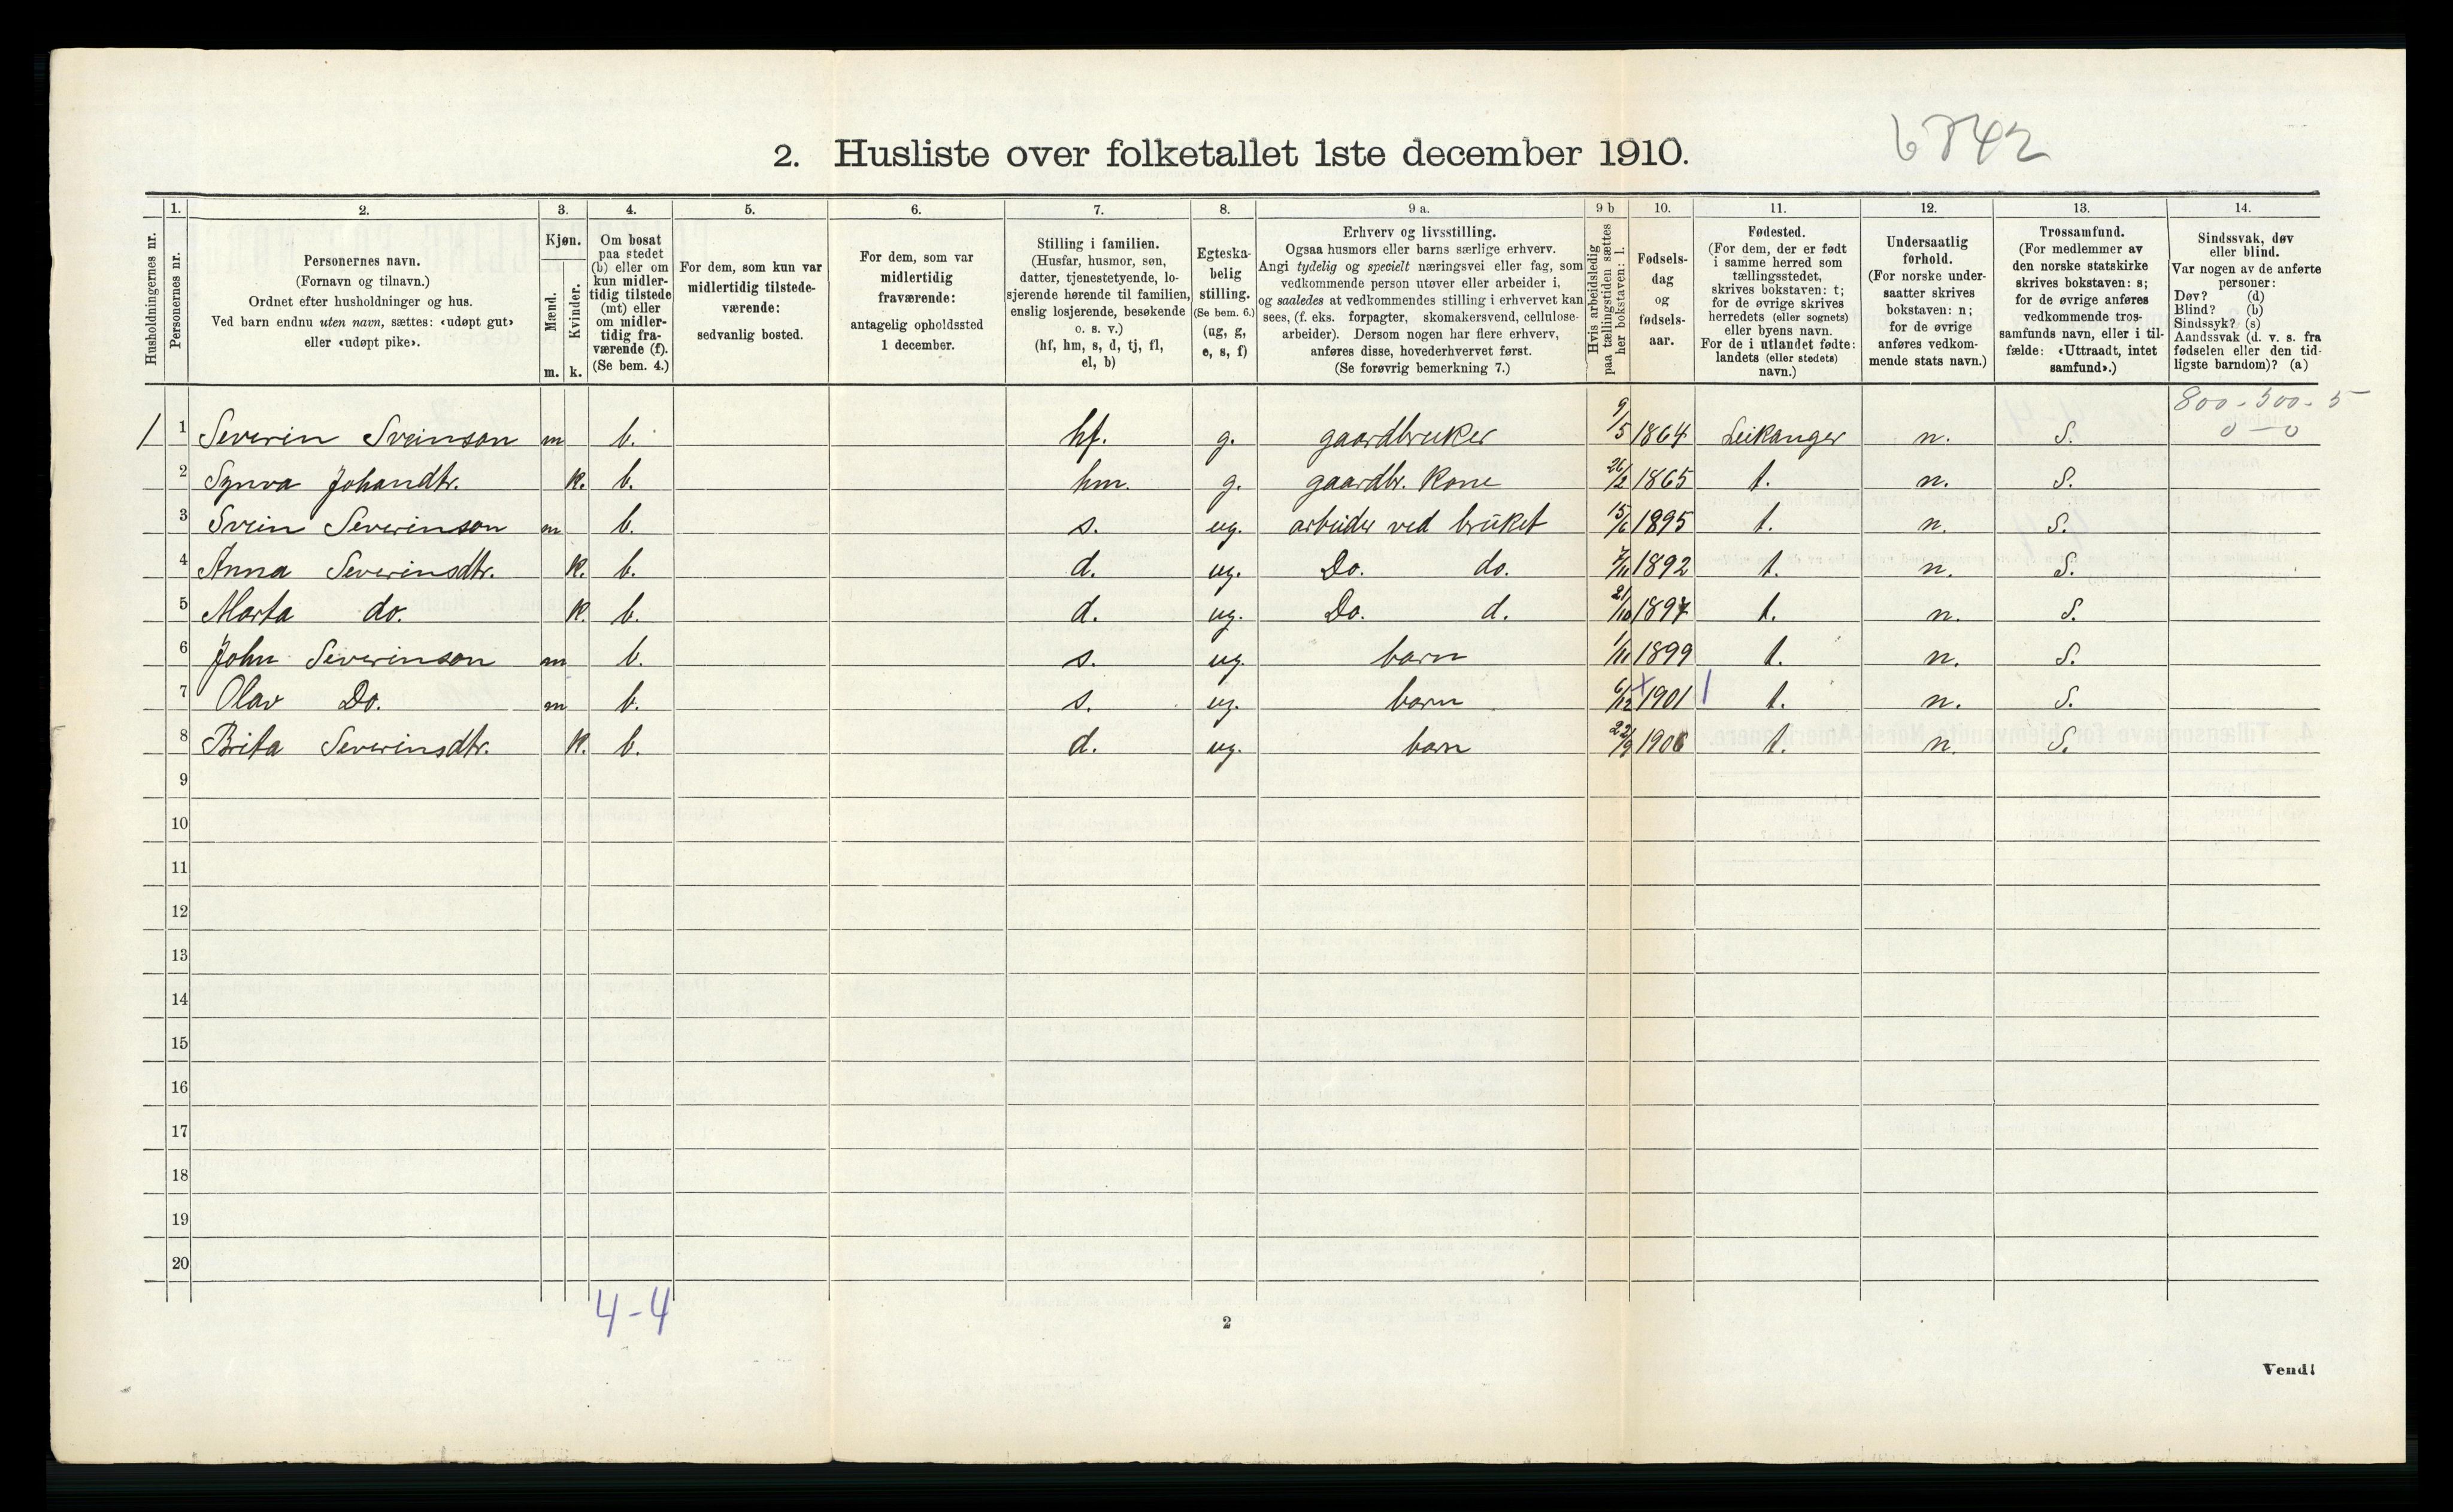 6842
2. Husliste over folketallet 1ste december 1910.
Husholdningernes nr.
1. Personernes nr.
2. Personernes navn.
(Fornavn og tilnavn.)
Ordnet efter husholdninger og hus.
Ved barn endnu uten navn, sættes: «udøpt gut»
eller «udøpt pike».
3. Kjøn.
Mænd. m.
Kvinder. k.
4. Om bosat
paa stedet
(b) eller om
kun midler-
tidig tilstede
(mt) eller
om midler-
tidig fra-
værende (f).
(Se bem. 4.)
5. For dem, som kun var
midlertidig tilstede-
værende:
sedvanlig bosted.
6. For dem, som var
midlertidig
fraværende:
antagelig opholdssted
1 december.
7. Stilling i familien.
(Husfar, husmor, søn,
datter, tjenestetyende, lo-
sjerende hørende til familien,
enslig losjerende, besøkende
o. s. v.)
(hf, hm, s, d, tj, fl,
el, b)
8. Egteska-
belig
stilling.
(Se bem. 6.)
(ug, g,
e, s, f)
9 a. Erhverv og livsstilling.
Ogsaa husmors eller barns særlige erhverv.
Angi tydelig og specielt næringsvei eller fag, som
vedkommende person utøver eller arbeider i,
og saaledes at vedkommendes stilling i erhvervet kan
sees, (f. eks. forpagter, skomakersvend, cellulose-
arbeider). Dersom nogen har flere erhverv,
anføres disse, hovederhvervet først.
(Se forøvrig bemerkning 7.)
9 b Hvis arbeidsledig
paa tællingstiden sættes
her bokstaven: l.
10. Fødsels-
dag
og
fødsels-
aar.
11. Fødested.
(For dem, der er født
i samme herred som
tællingsstedet,
skrives bokstaven: t;
for de øvrige skrives
herredets (eller sognets)
eller byens navn.
For de i utlandet fødte:
landets (eller stedets)
navn.)
12. Undersaatlig
forhold.
(For norske under-
saatter skrives
bokstaven: n;
for de øvrige
anføres vedkom-
mende stats navn.)
13. Trossamfund.
(For medlemmer av
den norske statskirke
skrives bokstaven: s;
for de øvrige anføres
vedkommende tros-
samfunds navn, eller i til-
fælde: «Uttraadt, intet
samfund».)
14. Sindssvak, døv
eller blind.
Var nogen av de anførte
personer:
Døv? (d)
Blind? (b)
Sindssyk? (s)
Aandssvak (d. v. s. fra
fødselen eller den tid-
ligste barndom)? (a)
800 - 500 - 5
0 — 0
1 1 Severin Sveinson m b. hf. g. gaardbruker 9/5 1864 Leikanger n. S.
2 Synva Johandtr. k. b. hm. g. gaardbr. kone 26/2 1865 t. n. S.
3 Svein Severinson m b. s. ug. arbeider ved bruket 15/6 1895 t. n. S.
4 Anna Severinsdtr. k. b. d. ug. Do. do. 7/11 1892 t. n. S.
5 Marta do. k. b. d. ug. Do. d. 21/10 1897 t. n. S.
6 John Severinson m b. s. ug. barn 1/11 1899 t. n. S.
7 Olav Do. m b. s. ug. barn 6/12 1901 t. n. S.
8 Brita Severinsdtr. k. b. d. ug. barn 22/9 1906 t. n. S.
9
10
11
12
13
14
15
16
17
18
19
20
4-4
2
Vend!